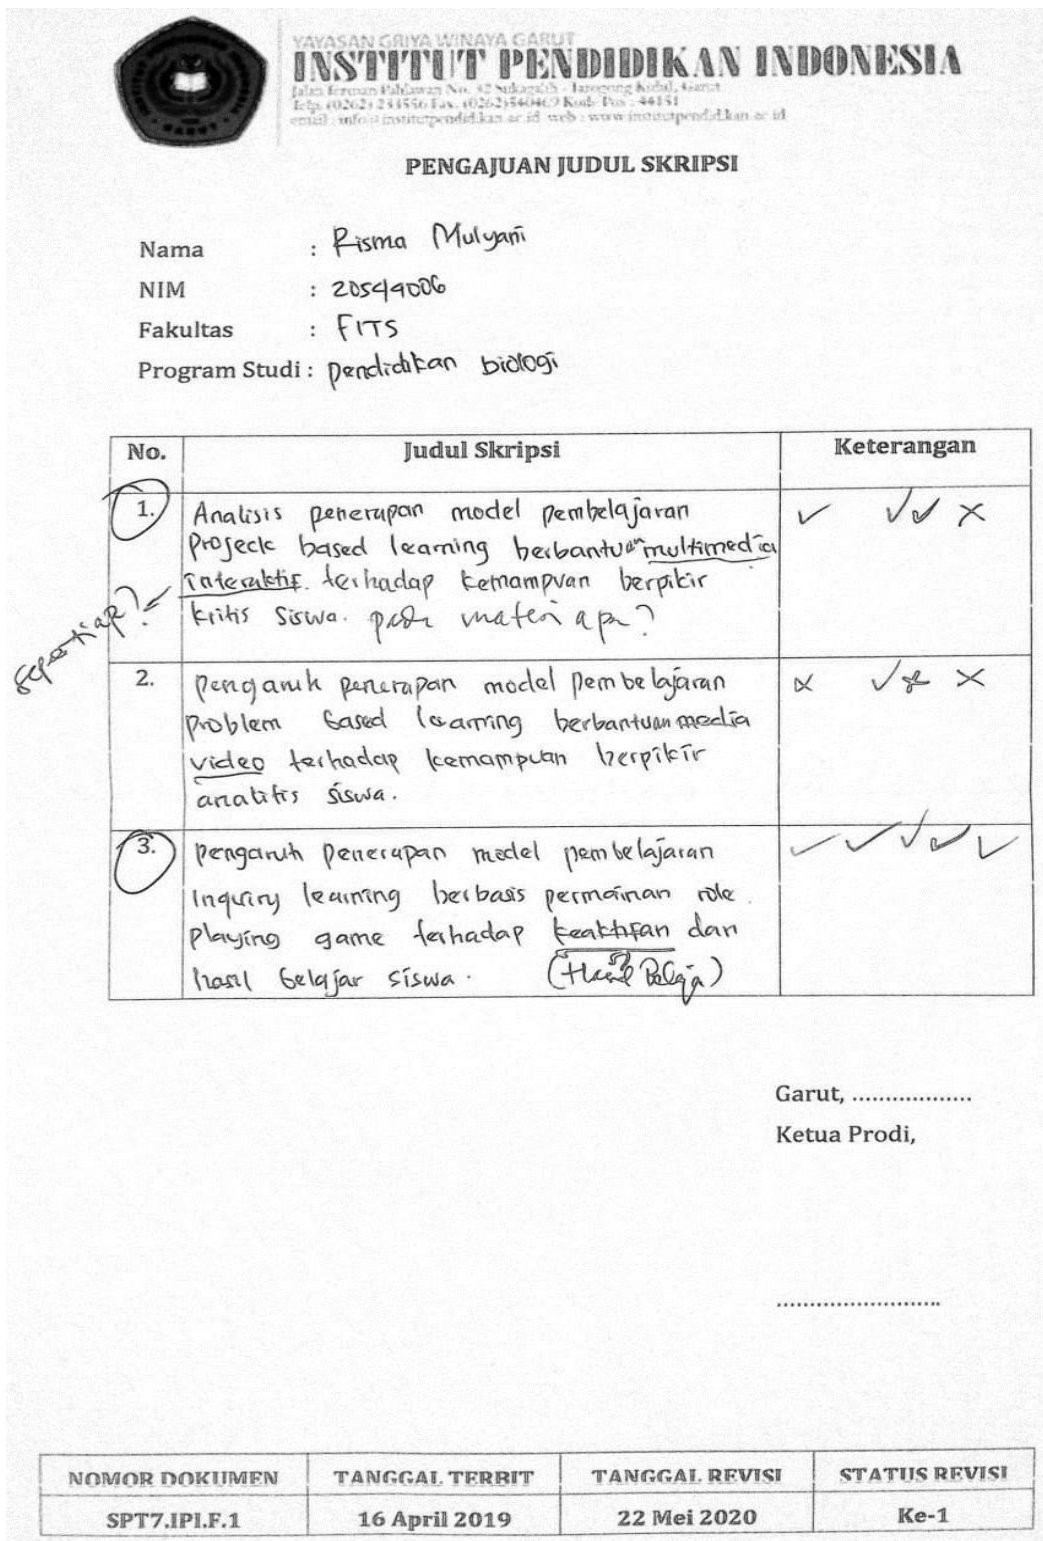 YAYASAN GRIYA WINAYA GARUT
INSTITUT PENDIDIKAN INDONESIA
Jalan Terusan Pahlawan No. 32 Sukagalih - Tarogong Kidul, Garut
Telp. (0262) 233556 Fax. (0262)540469 Kode Pos : 44151
email : info@institutpendidikan.ac.id web : www.institutpendidikan.ac.id
PENGAJUAN JUDUL SKRIPSI
Nama : Risma Mulyani
NIM : 20544006
Fakultas : FITS
Program Studi : pendidikan biologi
No. Judul Skripsi Keterangan
1. Analisis penerapan model pembelajaran
projeck based learning berbantuan multimedia
interaktif terhadap kemampuan berpikir
kritis siswa. pada materi apa?
2. Pengaruh penerapan model pembelajaran
problem based learning berbantuan media
video terhadap kemampuan berpikir
analitis siswa.
3. pengaruh penerapan model pembelajaran
inquiry learning berbasis permainan role
playing game terhadap keaktifan dan
hasil belajar siswa. (Hasil Belaja)
Garut, ..................
Ketua Prodi,
.........................
NOMOR DOKUMEN TANGGAL TERBIT TANGGAL REVISI STATUS REVISI
SPT7.IPI.F.1 16 April 2019 22 Mei 2020 Ke-1